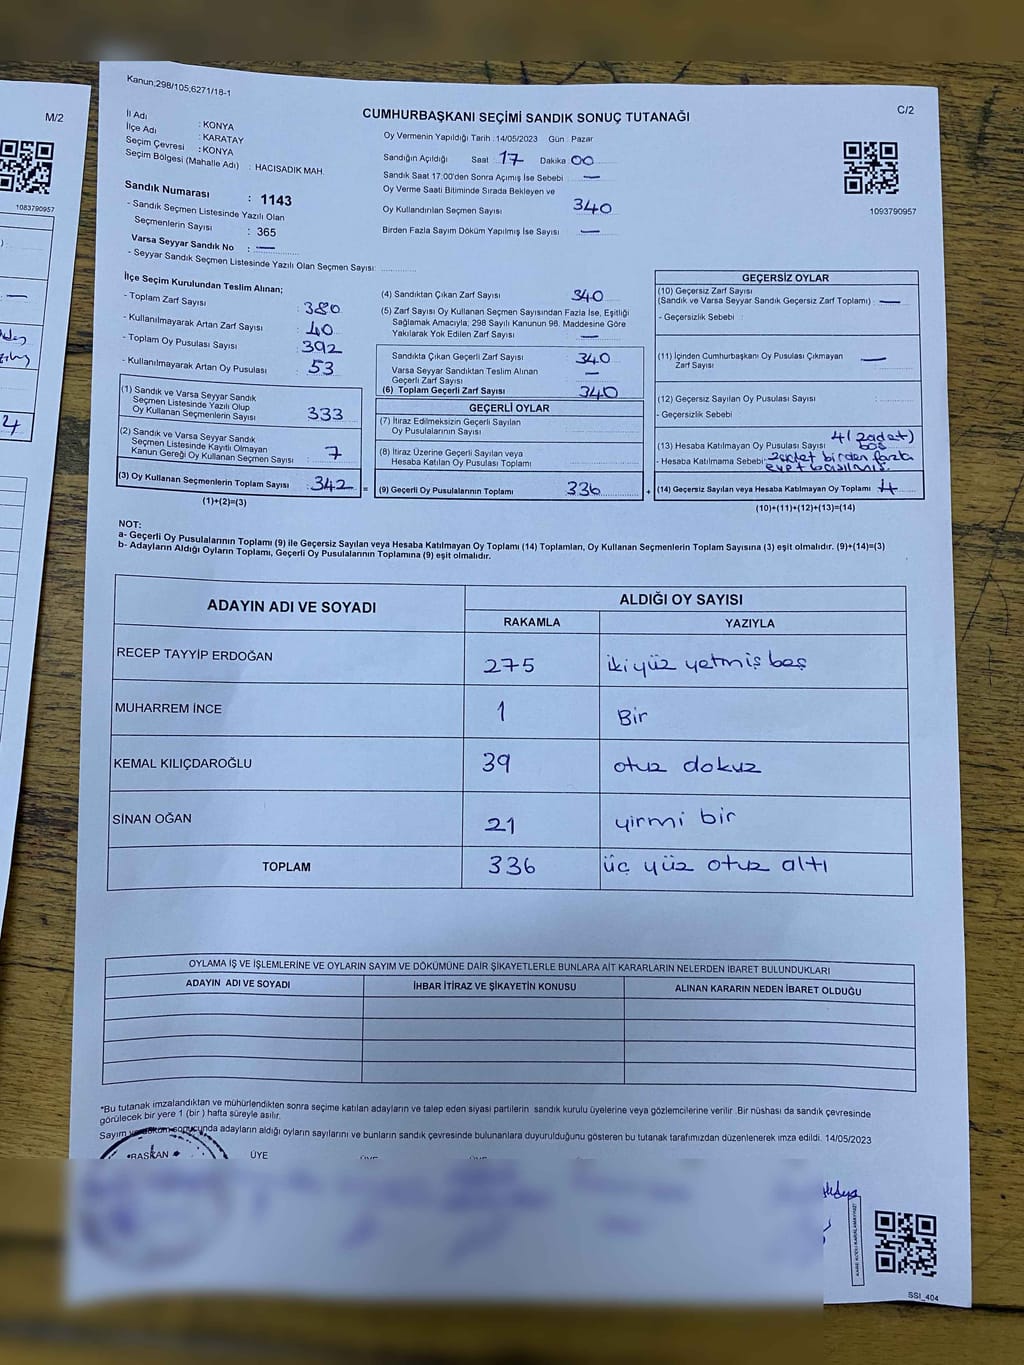 M/2
1083790957
4
Kanun,298/105,6271/18-1
C/2
CUMHURBAŞKANI SEÇİMİ SANDIK SONUÇ TUTANAĞI
İl Adı : KONYA
İlçe Adı : KARATAY
Seçim Çevresi : KONYA
Seçim Bölgesi (Mahalle Adı) : HACISADIK MAH.
Sandık Numarası : 1143
- Sandık Seçmen Listesinde Yazılı Olan
Seçmenlerin Sayısı : 365
Varsa Seyyar Sandık No : —
- Seyyar Sandık Seçmen Listesinde Yazılı Olan Seçmen Sayısı: ............
Oy Vermenin Yapıldığı Tarih : 14/05/2023 Gün : Pazar
Sandığın Açıldığı Saat : 17 Dakika : 00
Sandık Saat 17:00'den Sonra Açımış İse Sebebi : —
Oy Verme Saati Bitiminde Sırada Bekleyen ve
Oy Kullandırılan Seçmen Sayısı : 340
Birden Fazla Sayım Döküm Yapılmış İse Sayısı : —
1093790957
İlçe Seçim Kurulundan Teslim Alınan;
- Toplam Zarf Sayısı : 380
- Kullanılmayarak Artan Zarf Sayısı : 40
- Toplam Oy Pusulası Sayısı : 392
- Kullanılmayarak Artan Oy Pusulası : 53
(1) Sandık ve Varsa Seyyar Sandık
Seçmen Listesinde Yazılı Olup
Oy Kullanan Seçmenlerin Sayısı : 333
(2) Sandık ve Varsa Seyyar Sandık
Seçmen Listesinde Kayıtlı Olmayan
Kanun Gereği Oy Kullanan Seçmen Sayısı : 7
(3) Oy Kullanan Seçmenlerin Toplam Sayısı : 342 =
(1)+(2)=(3)
(4) Sandıktan Çıkan Zarf Sayısı : 340
(5) Zarf Sayısı Oy Kullanan Seçmen Sayısından Fazla İse, Eşitliği
Sağlamak Amacıyla; 298 Sayılı Kanunun 98. Maddesine Göre
Yakılarak Yok Edilen Zarf Sayısı : —
Sandıkta Çıkan Geçerli Zarf Sayısı : 340
Varsa Seyyar Sandıktan Teslim Alınan
Geçerli Zarf Sayısı : —
(6) Toplam Geçerli Zarf Sayısı : 340
GEÇERLİ OYLAR
(7) İtiraz Edilmeksizin Geçerli Sayılan
Oy Pusulalarının Sayısı :
(8) İtiraz Üzerine Geçerli Sayılan veya
Hesaba Katılan Oy Pusulası Toplamı :
(9) Geçerli Oy Pusulalarının Toplamı : 336 +
GEÇERSİZ OYLAR
(10) Geçersiz Zarf Sayısı
(Sandık ve Varsa Seyyar Sandık Geçersiz Zarf Toplamı) : —
- Geçersizlik Sebebi :
(11) İçinden Cumhurbaşkanı Oy Pusulası Çıkmayan
Zarf Sayısı : —
(12) Geçersiz Sayılan Oy Pusulası Sayısı :
- Geçersizlik Sebebi
(13) Hesaba Katılmayan Oy Pusulası Sayısı : 4 (2 adet) boş
- Hesaba Katılmama Sebebi : 2 adet birden fazla
evet basılmış.
(14) Geçersiz Sayılan veya Hesaba Katılmayan Oy Toplamı : 4
(10)+(11)+(12)+(13)=(14)
NOT:
a- Geçerli Oy Pusulalarının Toplamı (9) ile Geçersiz Sayılan veya Hesaba Katılmayan Oy Toplamı (14) Toplamları, Oy Kullanan Seçmenlerin Toplam Sayısına (3) eşit olmalıdır. (9)+(14)=(3)
b- Adayların Aldığı Oyların Toplamı, Geçerli Oy Pusulalarının Toplamına (9) eşit olmalıdır.
ADAYIN ADI VE SOYADI
ALDIĞI OY SAYISI
RAKAMLA YAZIYLA
RECEP TAYYİP ERDOĞAN 275 iki yüz yetmiş beş
MUHARREM İNCE 1 Bir
KEMAL KILIÇDAROĞLU 39 otuz dokuz
SİNAN OĞAN 21 yirmi bir
TOPLAM 336 üç yüz otuz altı
OYLAMA İŞ VE İŞLEMLERİNE VE OYLARIN SAYIM VE DÖKÜMÜNE DAİR ŞİKAYETLERLE BUNLARA AİT KARARLARIN NELERDEN İBARET BULUNDUKLARI
ADAYIN ADI VE SOYADI İHBAR İTİRAZ VE ŞİKAYETİN KONUSU ALINAN KARARIN NEDEN İBARET OLDUĞU
*Bu tutanak imzalandıktan ve mühürlendikten sonra seçime katılan adayların ve talep eden siyasi partilerin sandık kurulu üyelerine veya gözlemcilerine verilir .Bir nüshası da sandık çevresinde
görülecek bir yere 1 (bir ) hafta süreyle asılır.
Sayım ve döküm sonucunda adayların aldığı oyların sayılarını ve bunların sandık çevresinde bulunanlara duyurulduğunu gösteren bu tutanak tarafımızdan düzenlenerek imza edildi. 14/05/2023
BAŞKAN ÜYE
SSİ_404